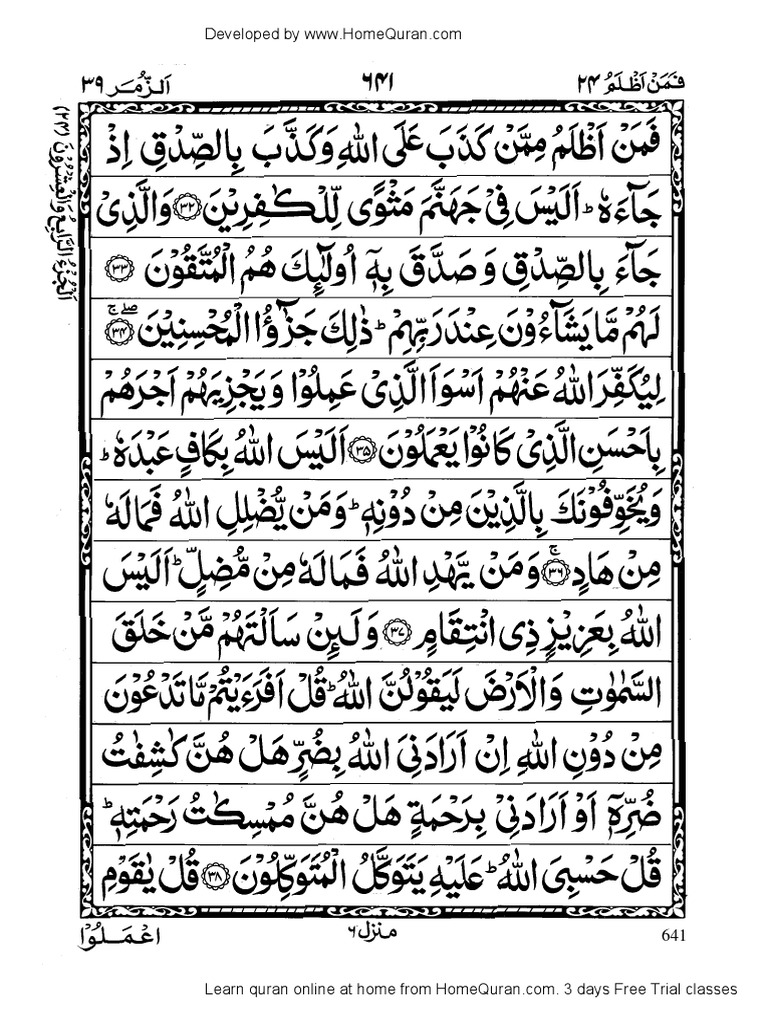 Developed by www.HomeQuran.com
فَمَنْ اَظْلَمُ ۲۴
۶۴۱
اَلزُّمَر ۳۹
اَلْجُزْءُ الرَّابِعُ وَالْعِشْرُوْنَ (۲۴)
فَمَنْ اَظْلَمُ مِمَّنْ كَذَبَ عَلَى اللّٰهِ وَكَذَّبَ بِالصِّدْقِ اِذْ
جَآءَهٗ ؕ اَلَيْسَ فِىْ جَهَنَّمَ مَثْوًى لِّلْكٰفِرِيْنَ ۝۳۲ وَالَّذِىْ
جَآءَ بِالصِّدْقِ وَ صَدَّقَ بِهٖۤ اُولٰٓئِكَ هُمُ الْمُتَّقُوْنَ ۝۳۳
لَهُمْ مَّا يَشَآءُوْنَ عِنْدَ رَبِّهِمْ ؕ ذٰلِكَ جَزٰٓؤُا الْمُحْسِنِيْنَ ۝۳۴ ۖۚ
لِيُكَفِّرَ اللّٰهُ عَنْهُمْ اَسْوَاَ الَّذِىْ عَمِلُوْا وَيَجْزِيَهُمْ اَجْرَهُمْ
بِاَحْسَنِ الَّذِىْ كَانُوْا يَعْمَلُوْنَ ۝۳۵ اَلَيْسَ اللّٰهُ بِكَافٍ عَبْدَهٗ ؕ
وَيُخَوِّفُوْنَكَ بِالَّذِيْنَ مِنْ دُوْنِهٖ ؕ وَمَنْ يُّضْلِلِ اللّٰهُ فَمَا لَهٗ
مِنْ هَادٍ ۝۳۶ ۚ وَمَنْ يَّهْدِ اللّٰهُ فَمَا لَهٗ مِنْ مُّضِلٍّ ؕ اَلَيْسَ
اللّٰهُ بِعَزِيْزٍ ذِى انْتِقَامٍ ۝۳۷ وَلَئِنْ سَاَلْتَهُمْ مَّنْ خَلَقَ
السَّمٰوٰتِ وَالْاَرْضَ لَيَقُوْلُنَّ اللّٰهُ ؕ قُلْ اَفَرَءَيْتُمْ مَّا تَدْعُوْنَ
مِنْ دُوْنِ اللّٰهِ اِنْ اَرَادَنِىَ اللّٰهُ بِضُرٍّ هَلْ هُنَّ كٰشِفٰتُ
ضُرِّهٖۤ اَوْ اَرَادَنِىْ بِرَحْمَةٍ هَلْ هُنَّ مُمْسِكٰتُ رَحْمَتِهٖ ؕ
قُلْ حَسْبِىَ اللّٰهُ ؕ عَلَيْهِ يَتَوَكَّلُ الْمُتَوَكِّلُوْنَ ۝۳۸ قُلْ يٰقَوْمِ
641
منزل ۶
اعْمَلُوْا
Learn quran online at home from HomeQuran.com. 3 days Free Trial classes